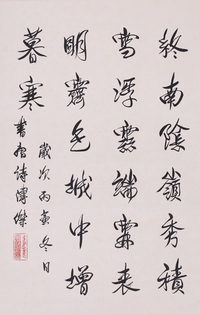 終南陰嶺秀積
雪浮雲端表
明霽色城中增
暮寒
歲次丙寅冬日
書詩溥傑